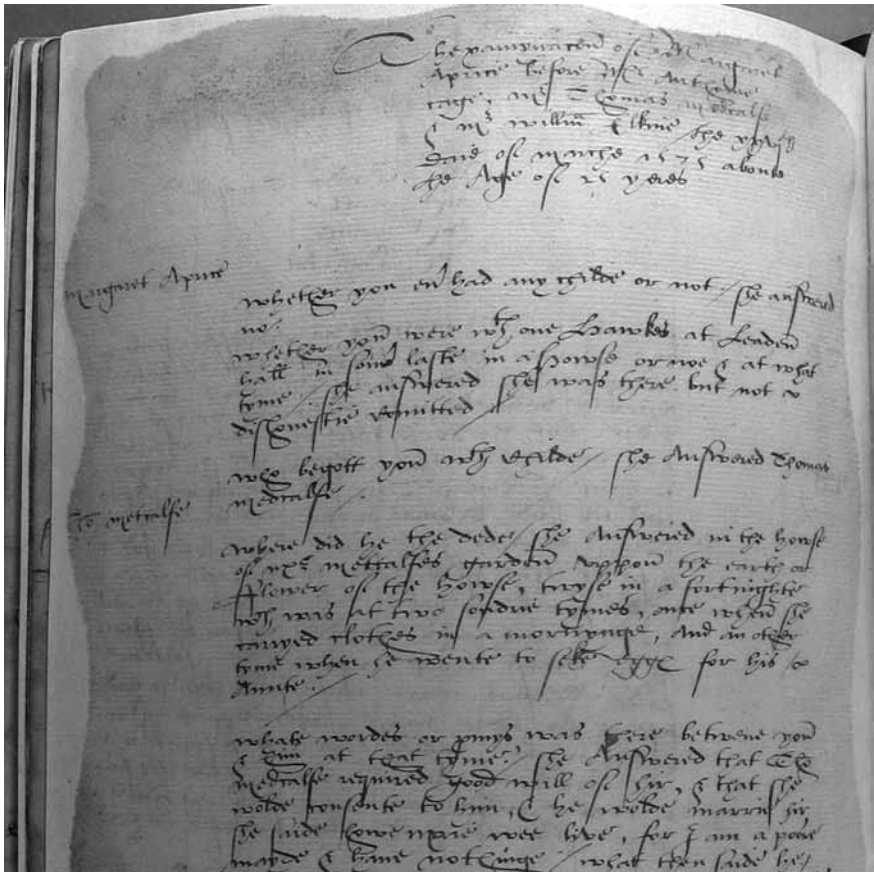 Thexaminacon of Margaret
Aprice before Mr Anthonie
cage, Mr Thomas medcalfe
& Mr willm Elkine the
daie of marche 1575 aboute
the Age of yeres
Margaret Aprice
whether you eu had any childe or not / she answered
no /
whether you were wth one Hawkes at Leaden
hall in laste in a howse or noe & at what
tyme / she answered she was there but not
dishonestie Comitted /
who begott you wth Childe / she Answered Thomas
medcalfe /
Tho metcalfe
where did he the dede / she Answered in the howse
of mr metcalfes garden vppon the earth or
fflower of the howse, twyse in a fortnighte
wch was at two sondrie tymes, once when she
caryed clothes in a mornynge, And an other
tyme when he wente to seke egge for his
Aunte /
whate wordes or pmys was there betwene you
& him at that tyme / she Answered that Tho
medcalfe required good will of hir, & that she
wolde consente to him, & he wolde marrie hir
she saide howe maie wee live, for I am a pore
mayde & have nothinge / what then saide he /